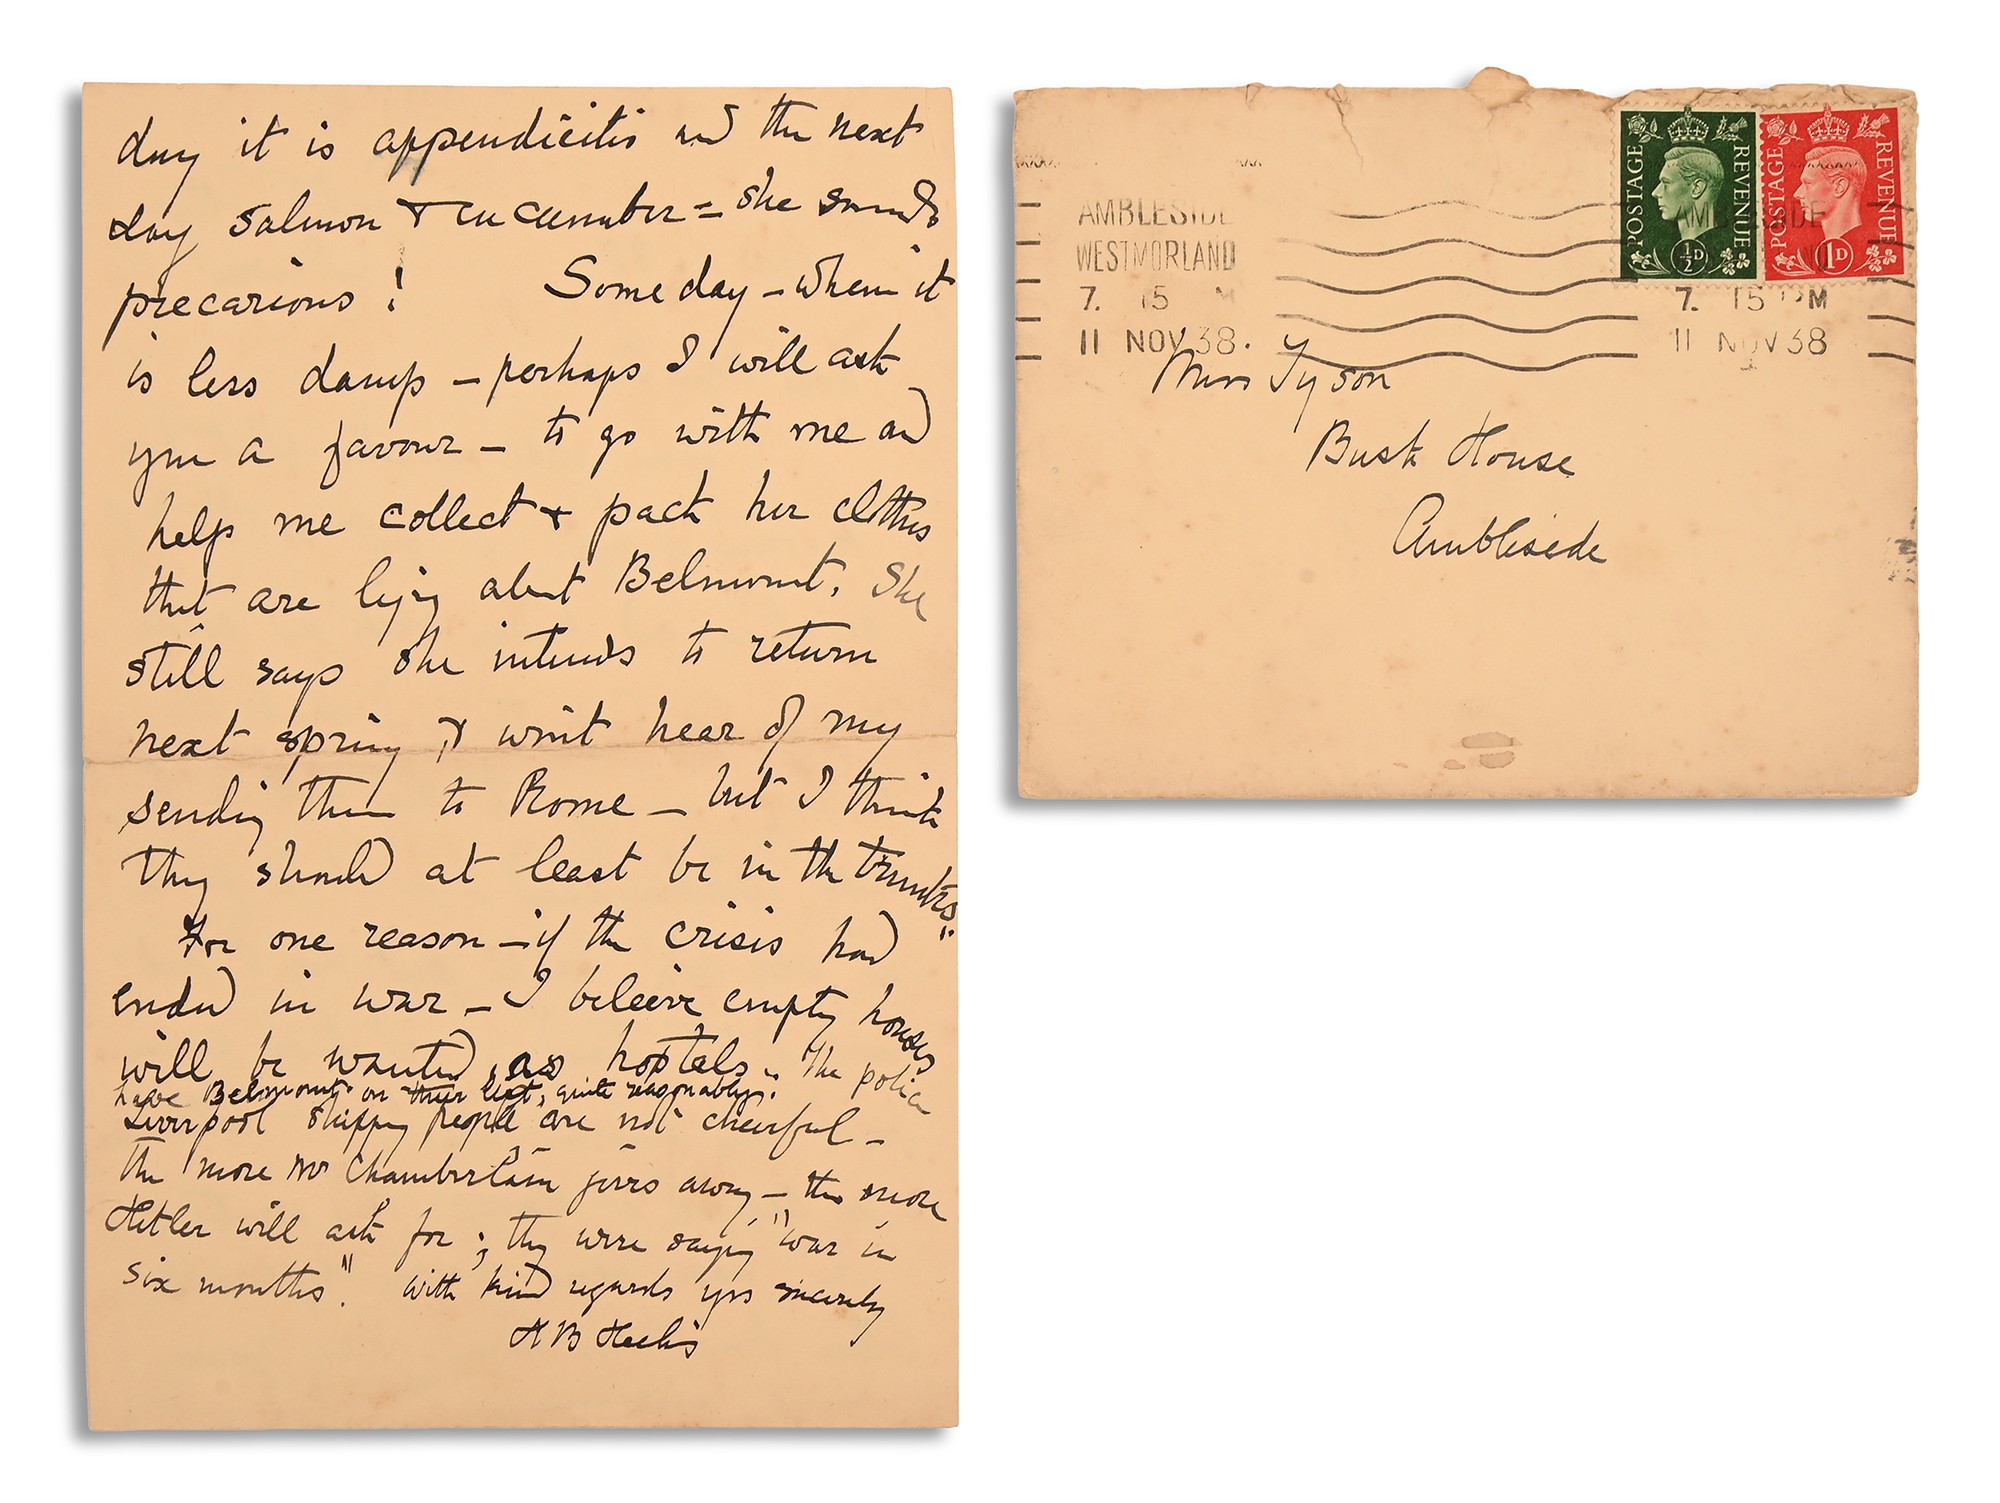 day it is appendicitis and the next
day salmon & cucumber = she sounds
precarious! Some day – when it
is less damp – perhaps I will ask
you a favour – to go with me and
help me collect & pack her clothes
that are lying about Belmont. She
still says she intends to return
next spring & won't hear of my
sending them to Rome – but I think
they should at least be in the trunks.
For one reason – if the crisis had
ended in war – I beleive empty houses
will be wanted as hostels. The police
have Belmont on their list, quite reasonably.
Liverpool shipping people are not cheerful –
the more Mr Chamberlain gives away – the more
Hitler will ask for; they were saying "war in
six months". With kind regards yrs sincerely
H B Heelis
POSTAGE REVENUE ½D
POSTAGE REVENUE 1D
AMBLESIDE
WESTMORLAND
7. 15 M
11 NOV 38.
AMBLESIDE
7. 15 PM
11 NOV 38
Miss Tyson
Busk House
Ambleside